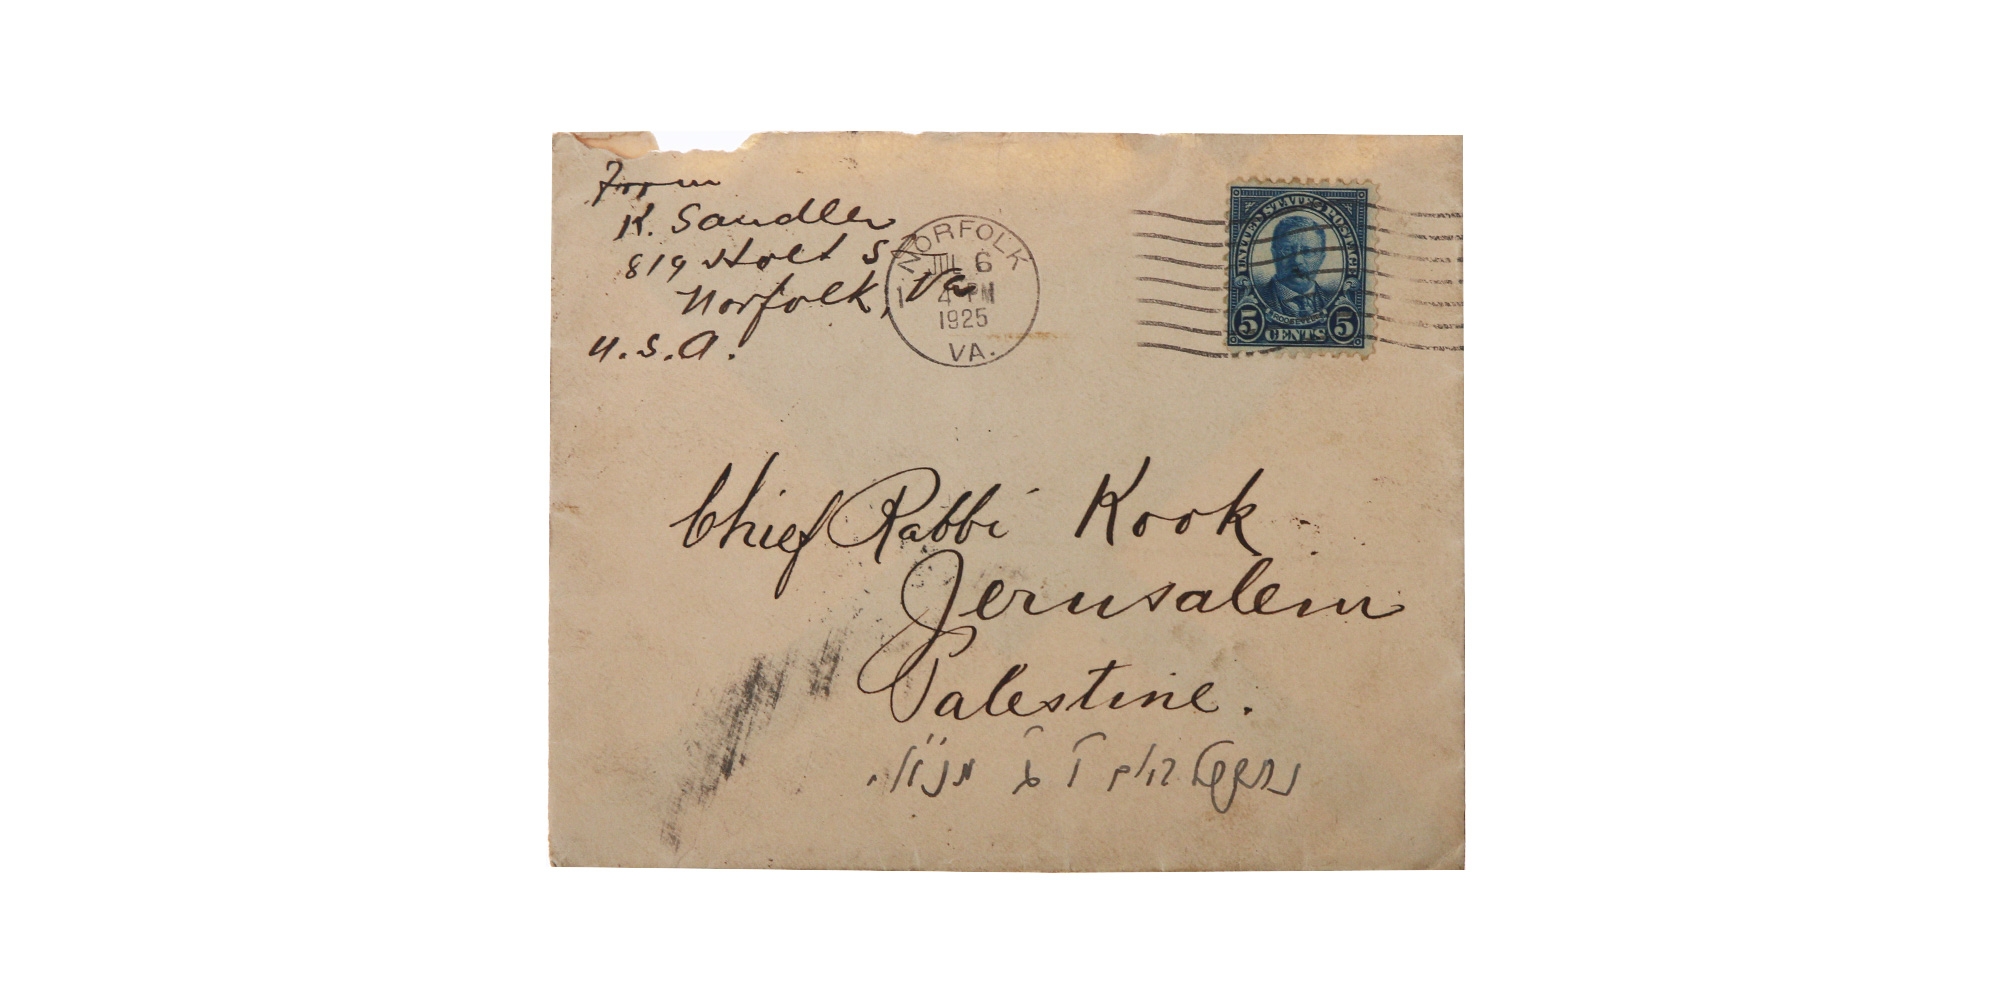 From
K. Sandler
819 Holt S
Norfolk, Va
U.S.A.
NORFOLK
JUL 6
4 PM
1925
VA.
UNITED STATES POSTAGE
ROOSEVELT
5 CENTS 5
Chief Rabbi Kook
Jerusalem
Palestine.
נתקבל היום ד'